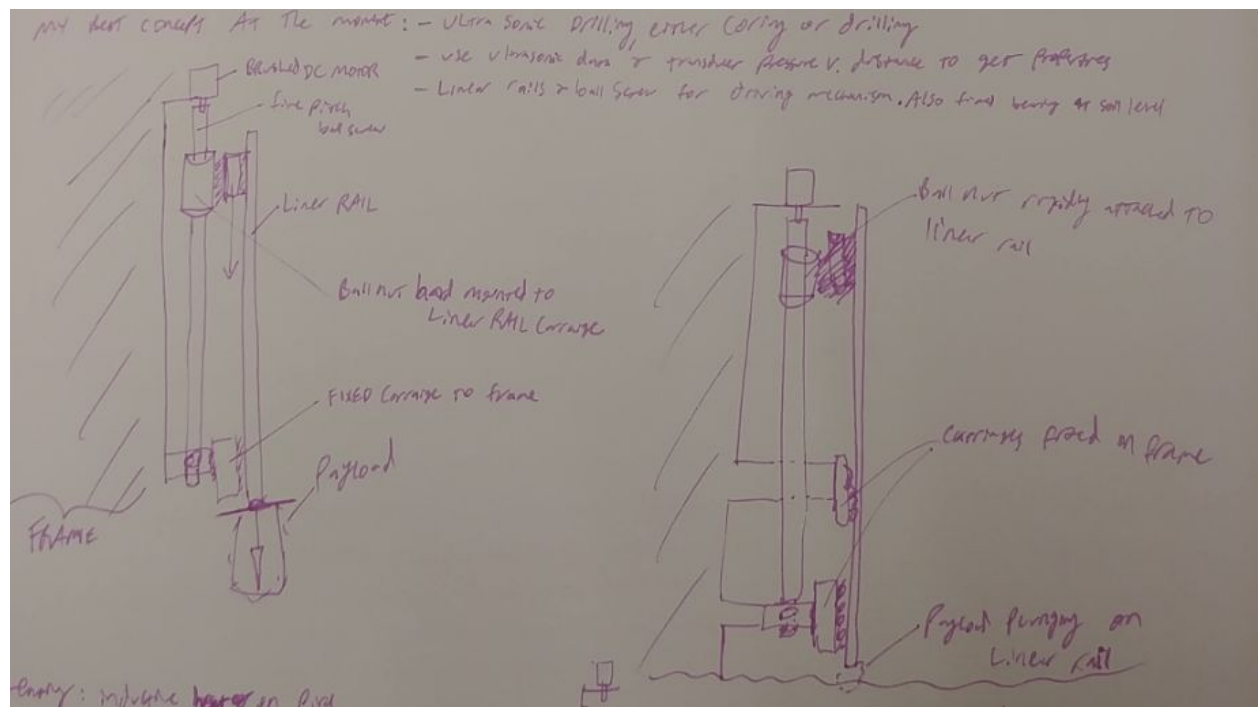 my best concept At The moment: - Ultra Sonic Drilling, either Coring or drilling
- use ultrasonic data & transducer pressure v. distance to get
- Linear rails & ball screw for driving mechanism. Also fixed bearing at soil level
BRUSHED DC MOTOR
fine Pitch
ball screw
Liner RAIL
Ball nut mounted to
Liner RAIL Carraige
FIXED Carraige To frame
Payload
FRAME
Ball nut rigidly attached TO
liner rail
Carriages fixed on frame
Payload Plunging on
Linear rail
: inductive on